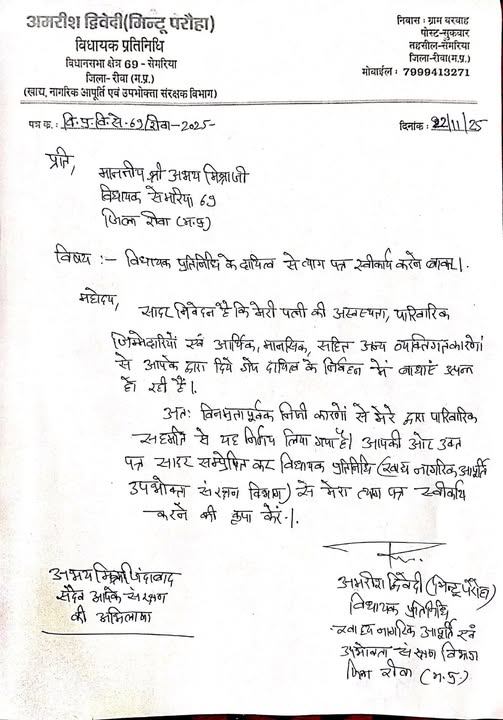 अमरीश द्विवेदी(मिन्टू परौहा)
विधायक प्रतिनिधि
विधानसभा क्षेत्र 69 - सेमरिया
जिला- रीवा (म.प्र.)
(खाद्य, नागरिक आपूर्ति एवं उपभोक्ता संरक्षक विभाग)
निवास : ग्राम बरवाह
पोस्ट-सुकवार
तहसील-सेमरिया
जिला-रीवा(म.प्र.)
मोबाईल : 7999413271
पत्र क.: वि.प्र.वि.से.69/रीवा-2025-
दिनांक : 22/11/25
प्रति,
माननीय श्री अभय मिश्राजी
विधायक सेमरिया 69
जिला रीवा (म.प्र)
विषय :- विधायक प्रतिनिधि के दायित्व से त्याग पत्र स्वीकार्य करने बावत।
महोदय,
सादर निवेदन है कि मेरी पत्नी की अस्वस्थता, पारिवारिक
जिम्मेदारियों एवं आर्थिक, मानसिक, सहित अन्य व्यक्तिगतकारणों
से आपके द्वारा दिये गये दायित्व के निर्वहन में बाधाएं उत्पन्न
हो रही हैं।
अतः विनम्रतापूर्वक निजी कारणों से मेरे द्वारा पारिवारिक
सहमति से यह निर्णय लिया गया है। आपकी ओर उक्त
पत्र सादर सम्प्रेषित कर विधायक प्रतिनिधि (खाद्य नागरिक आपूर्ति
उपभोक्ता संरक्षण विभाग) से मेरा त्याग पत्र स्वीकार्य
करने की कृपा करें।
अभय मिश्रा जिंदाबाद
सदैव आपके संरक्षण
की अभिलाषा
अमरीश द्विवेदी (मिन्टू परौहा)
विधायक प्रतिनिधि
खाद्य नागरिक आपूर्ति एवं
उपभोक्ता संरक्षण विभाग
जिला रीवा (म.प्र.)